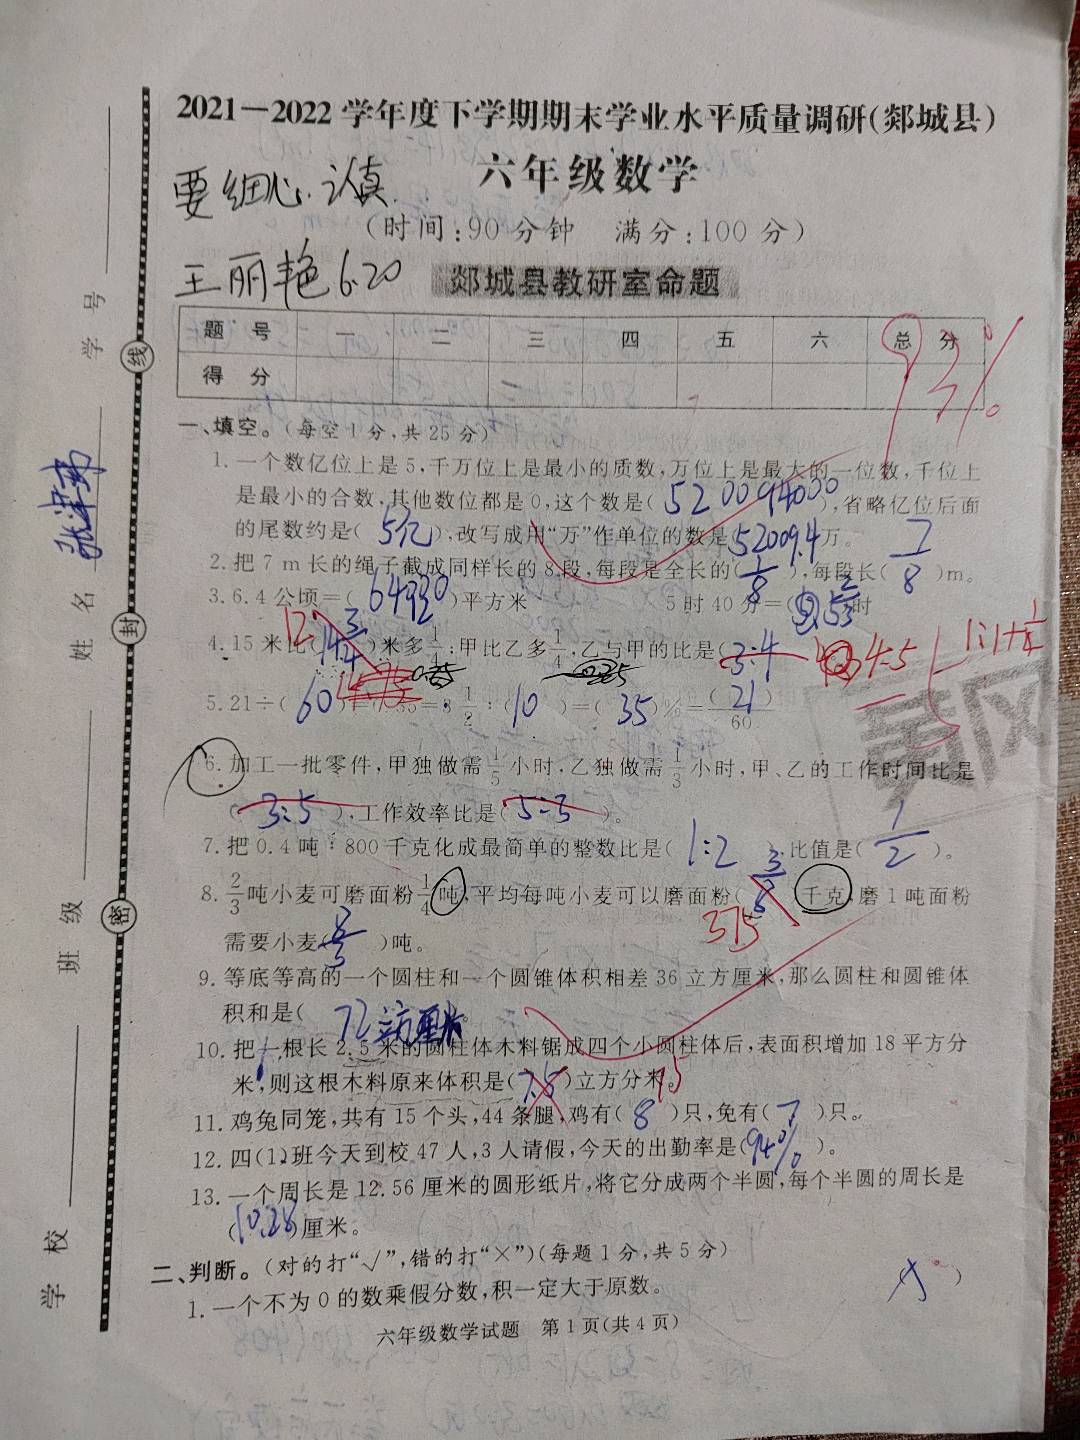 2021—2022学年度下学期期末学业水平质量调研(郯城县)
六年级数学
要细心.认真.
(时间:90分钟 满分:100分)
王丽艳6.20
郯城县教研室命题
题 号 一 二 三 四 五 六 总 分
得 分
93%
一、填空。(每空1分,共25分)
1.一个数亿位上是5,千万位上是最小的质数,万位上是最大的一位数,千位上
是最小的合数,其他数位都是0,这个数是( 520094000 ),省略亿位后面
的尾数约是( 5亿 ),改写成用“万”作单位的数是( 52009.4 )万。
2.把7 m长的绳子截成同样长的8段,每段是全长的( 1/8 ),每段长( 7/8 )m。
3.6.4公顷=( )平方米 5时40分=( 5 2/3 )时
4.15米比( 12 )米多1/4;甲比乙多1/4,乙与甲的比是( 3:4 ) 4:5
5.21÷( 60 )=0.35=3 1/2:( 10 )=( 35 )%=( 21 )/60
6.加工一批零件,甲独做需1/5小时,乙独做需1/3小时,甲、乙的工作时间比是
( 3:5 ),工作效率比是( 5:3 )。
7.把0.4吨:800千克化成最简单的整数比是( 1:2 ),比值是( 1/2 )。
8.2/3吨小麦可磨面粉1/4吨,平均每吨小麦可以磨面粉( 3/8 )千克,磨1吨面粉
375
需要小麦( 8/3 )吨。
9.等底等高的一个圆柱和一个圆锥体积相差36立方厘米,那么圆柱和圆锥体
积和是( 72立方厘米 )。
10.把一根长2.5米的圆柱体木料锯成四个小圆柱体后,表面积增加18平方分
米,则这根木料原来体积是( 7.5 )立方分米。 75
11.鸡兔同笼,共有15个头,44条腿,鸡有( 8 )只,兔有( 7 )只。
12.四(1)班今天到校47人,3人请假,今天的出勤率是( 94% )。
13.一个周长是12.56厘米的圆形纸片,将它分成两个半圆,每个半圆的周长是
( 10.28 )厘米。
二、判断。(对的打“√”,错的打“×”)(每题1分,共5分)
1.一个不为0的数乘假分数,积一定大于原数。 ( × )
六年级数学试题 第1页(共4页)
学校 班级 姓名 学号
密 封 线